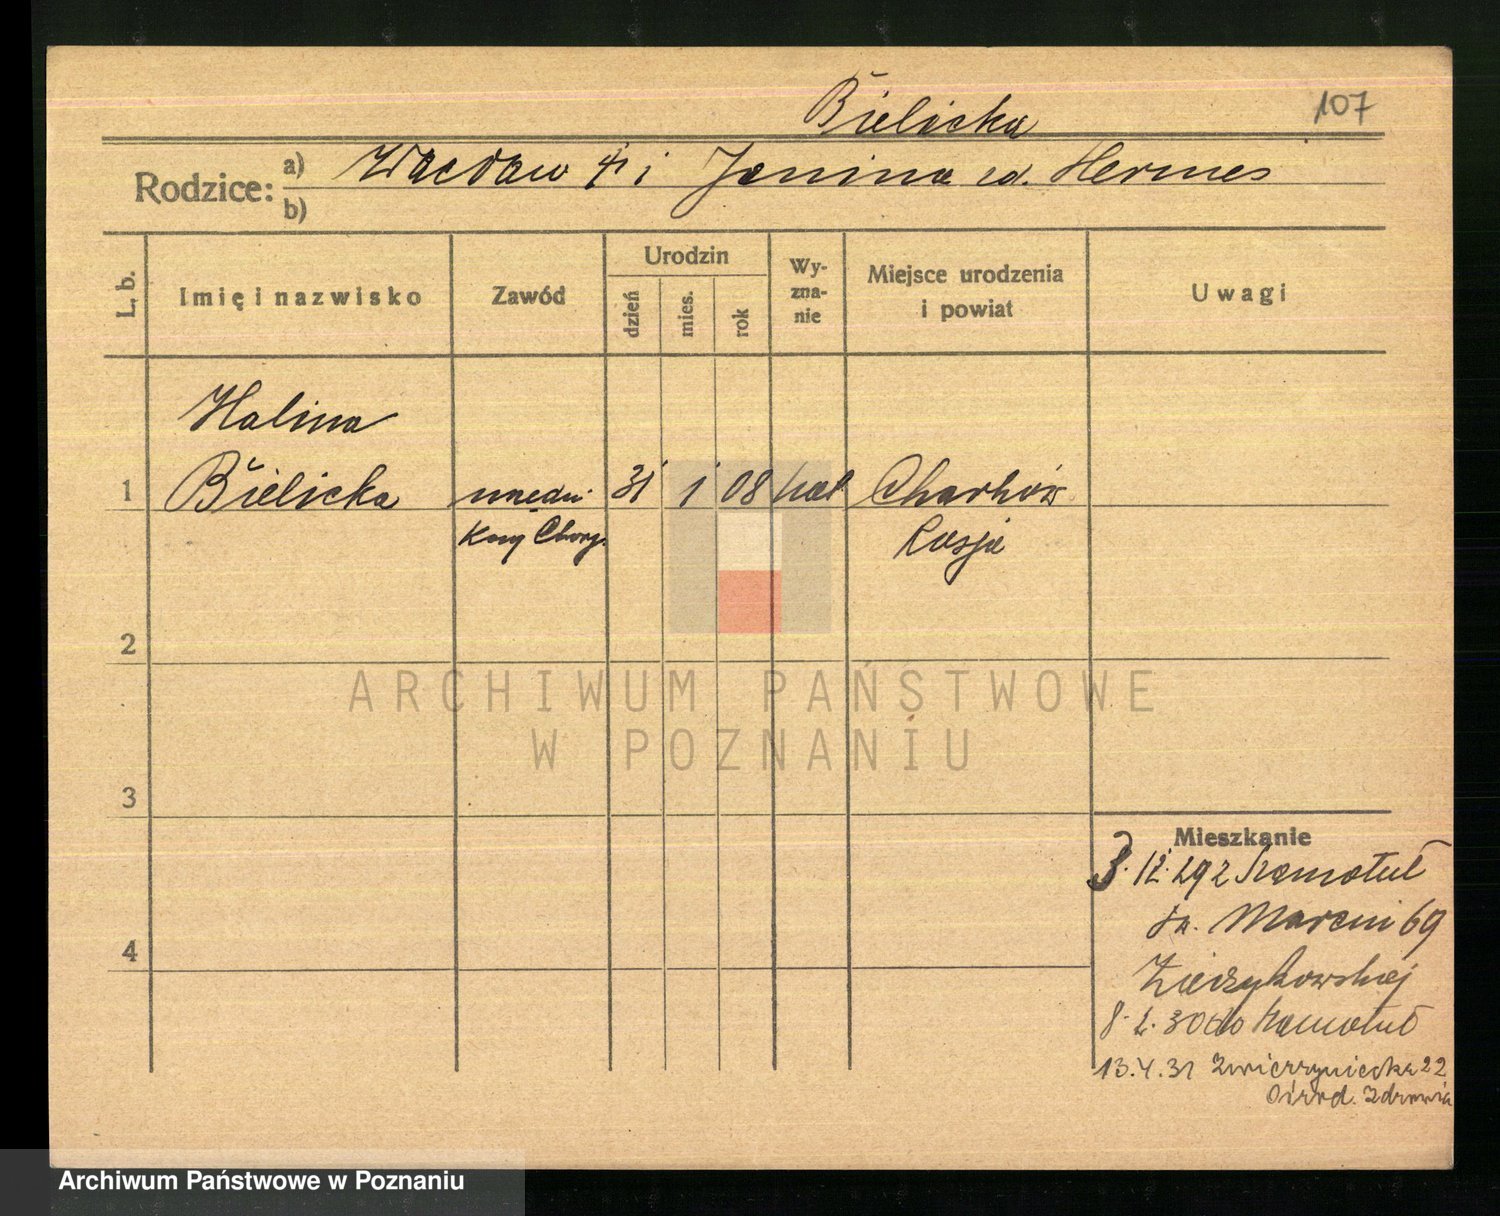 Bielicka
107
Rodzice: a) Wacław † i Janina zd. Hermes
b)
L. b.
Imię i nazwisko
Zawód
Urodzin
dzień
mies.
rok
Wy-
zna-
nie
Miejsce urodzenia
i powiat
Uwagi
Halina
1 Bielicka 31 1 08 kat. Charków
Kasy Chory.
Rosja
2
ARCHIWUM PAŃSTWOWE
W POZNANIU
3
Mieszkanie
3.12.29 z Szamotuł
św. Marcin 69
4
8.2.30 do Szamotuł
13.4.31 Zwierzyniecka 22
Ośrod. Zdrowia
Archiwum Państwowe w Poznaniu